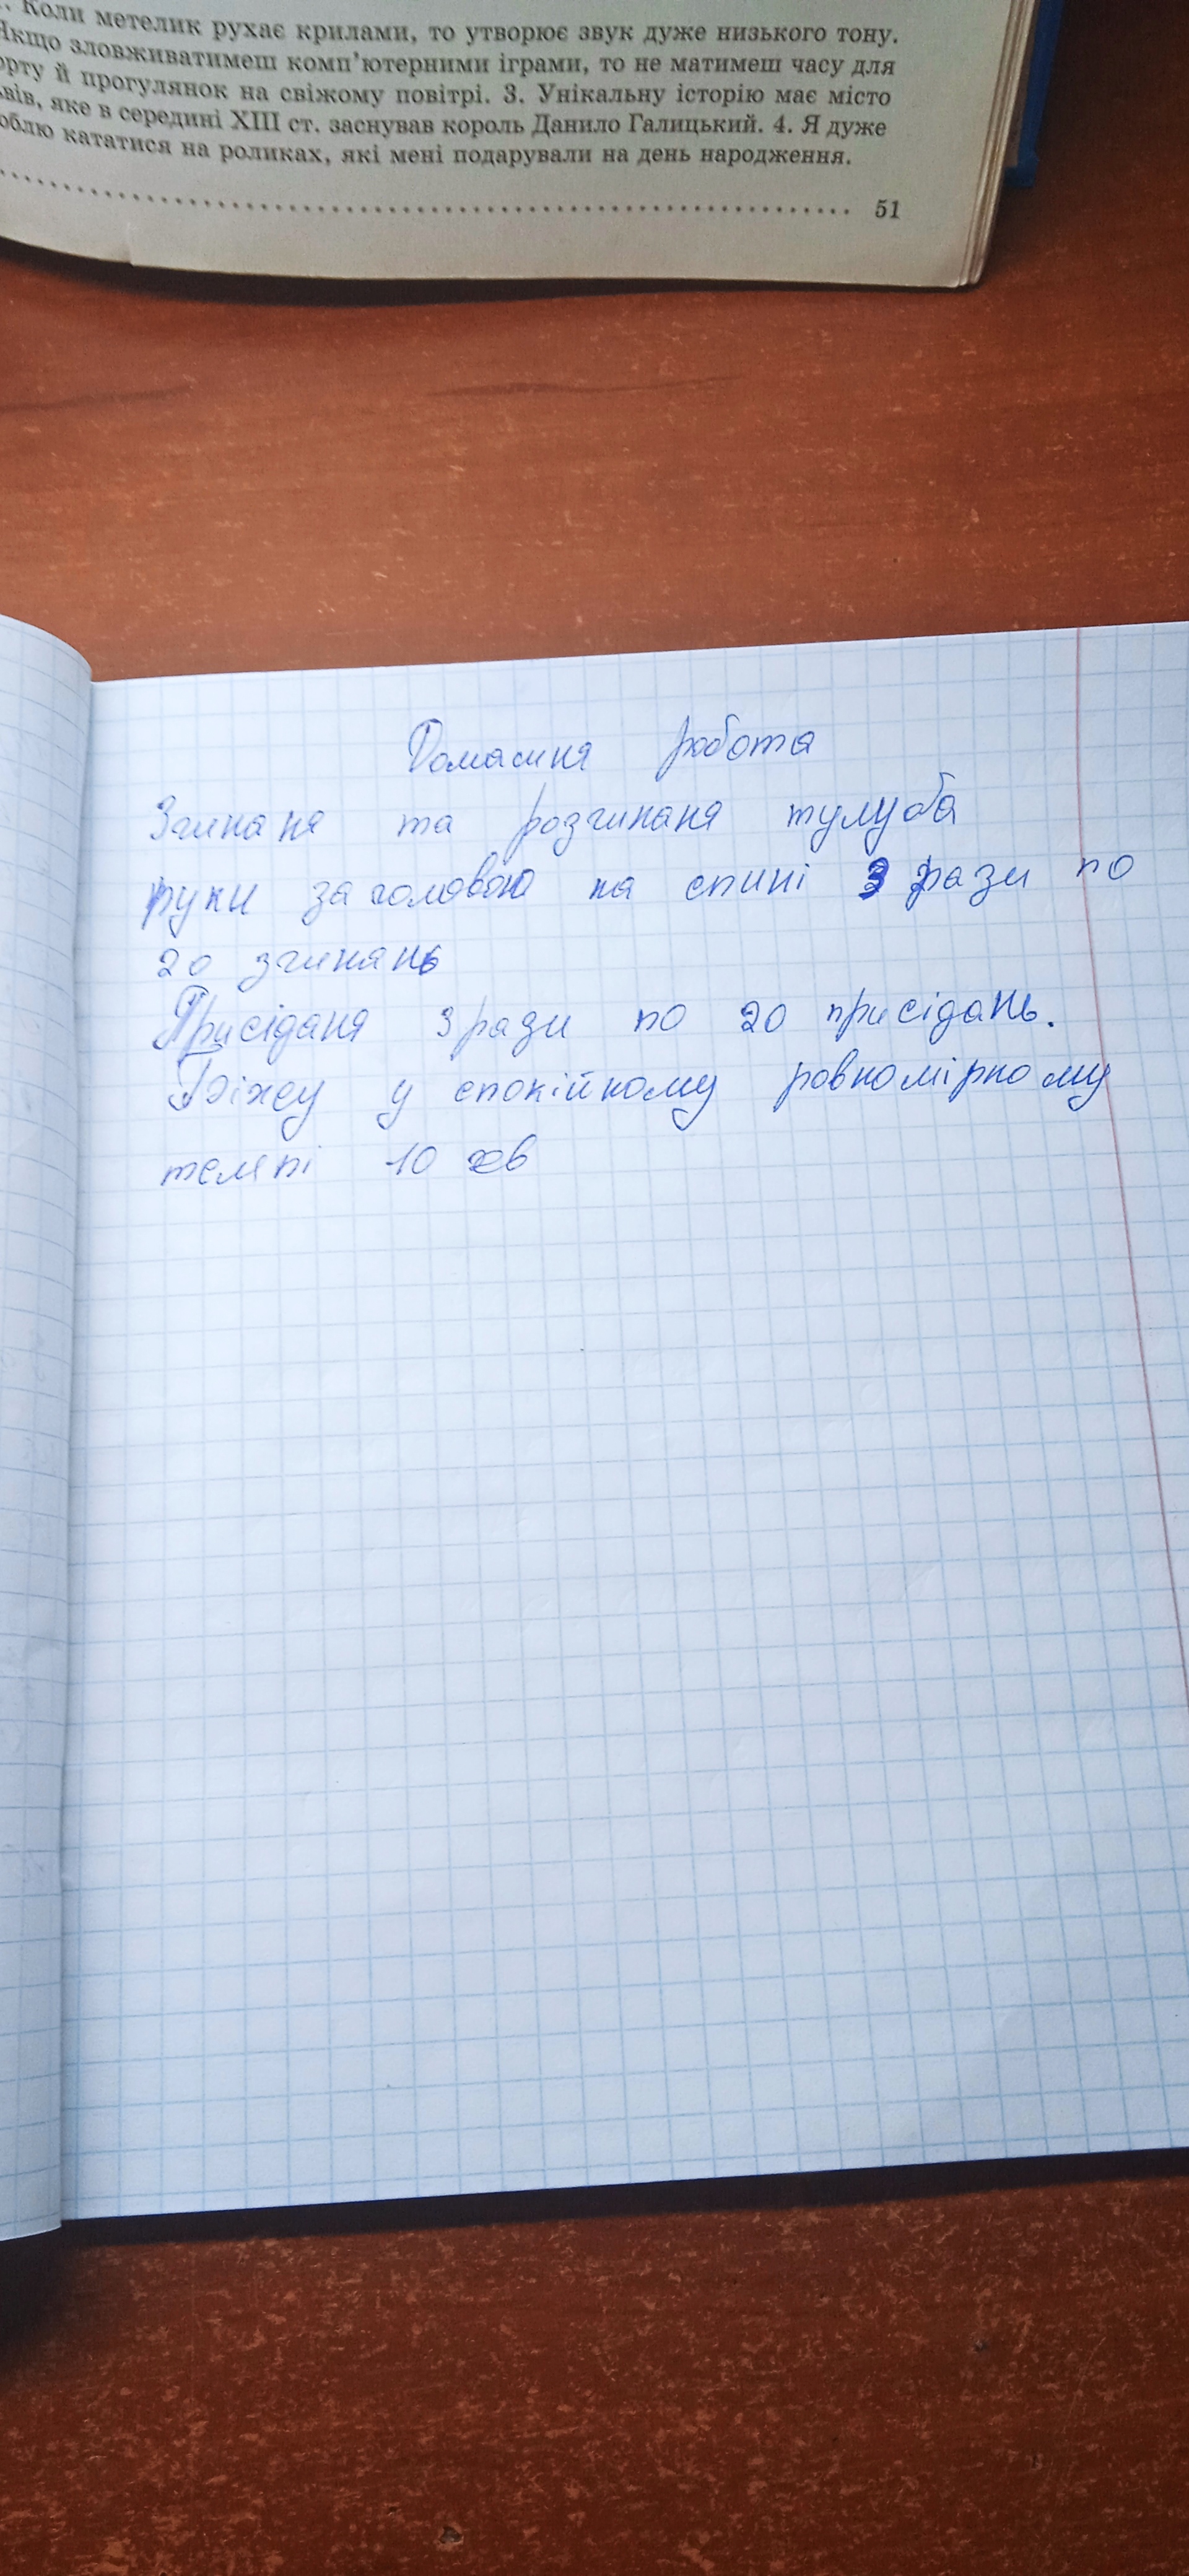 . Коли метелик рухає крилами, то утворює звук дуже низького тону.
Якщо зловживатимеш комп'ютерними іграми, то не матимеш часу для
орту й прогулянок на свіжому повітрі. 3. Унікальну історію має місто
ьвів, яке в середині XIII ст. заснував король Данило Галицький. 4. Я дуже
юблю кататися на роликах, які мені подарували на день народження.
51
Домашня робота
Згинаня та розгинаня тулуба
руки за головою на спині 3 рази по
20 згинань
Присіданя 3 рази по 20 присідань.
Біжу у спокійному ровномірному
темпі 10 хв